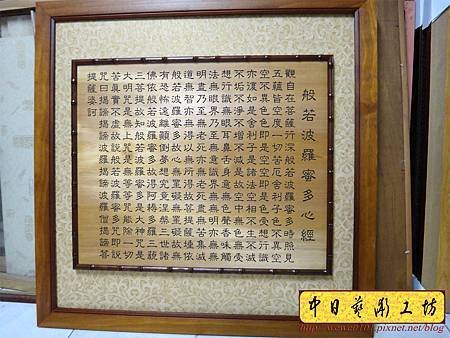 般若波羅蜜多心經
觀自在菩薩行深般若波羅蜜多時照見
五蘊皆空度一切苦厄舍利子色不異空
空不異色色即是空空即是色受想行識
亦復如是舍利子是諸法空相不生不滅
不垢不淨不增不減是故空中無色無受
想行識無眼耳鼻舌身意無色聲香味觸
法無眼界乃至無意識界無無明亦無無
明盡乃至無老死亦無老死盡無苦集滅
道無智亦無得以無所得故菩提薩埵依
般若波羅蜜多故心無罣礙無罣礙故無
有恐怖遠離顛倒夢想究竟涅槃三世諸
佛依般若波羅蜜多故得阿耨多羅三藐
三菩提故知般若波羅蜜多是大神咒是
大明咒是無上咒是無等等咒能除一切
苦真實不虛故說般若波羅蜜多咒即說
咒曰揭諦揭諦波羅揭諦波羅僧揭諦菩
提薩婆訶
中日藝彫工坊
http://wewe0101.pixnet.net/blog